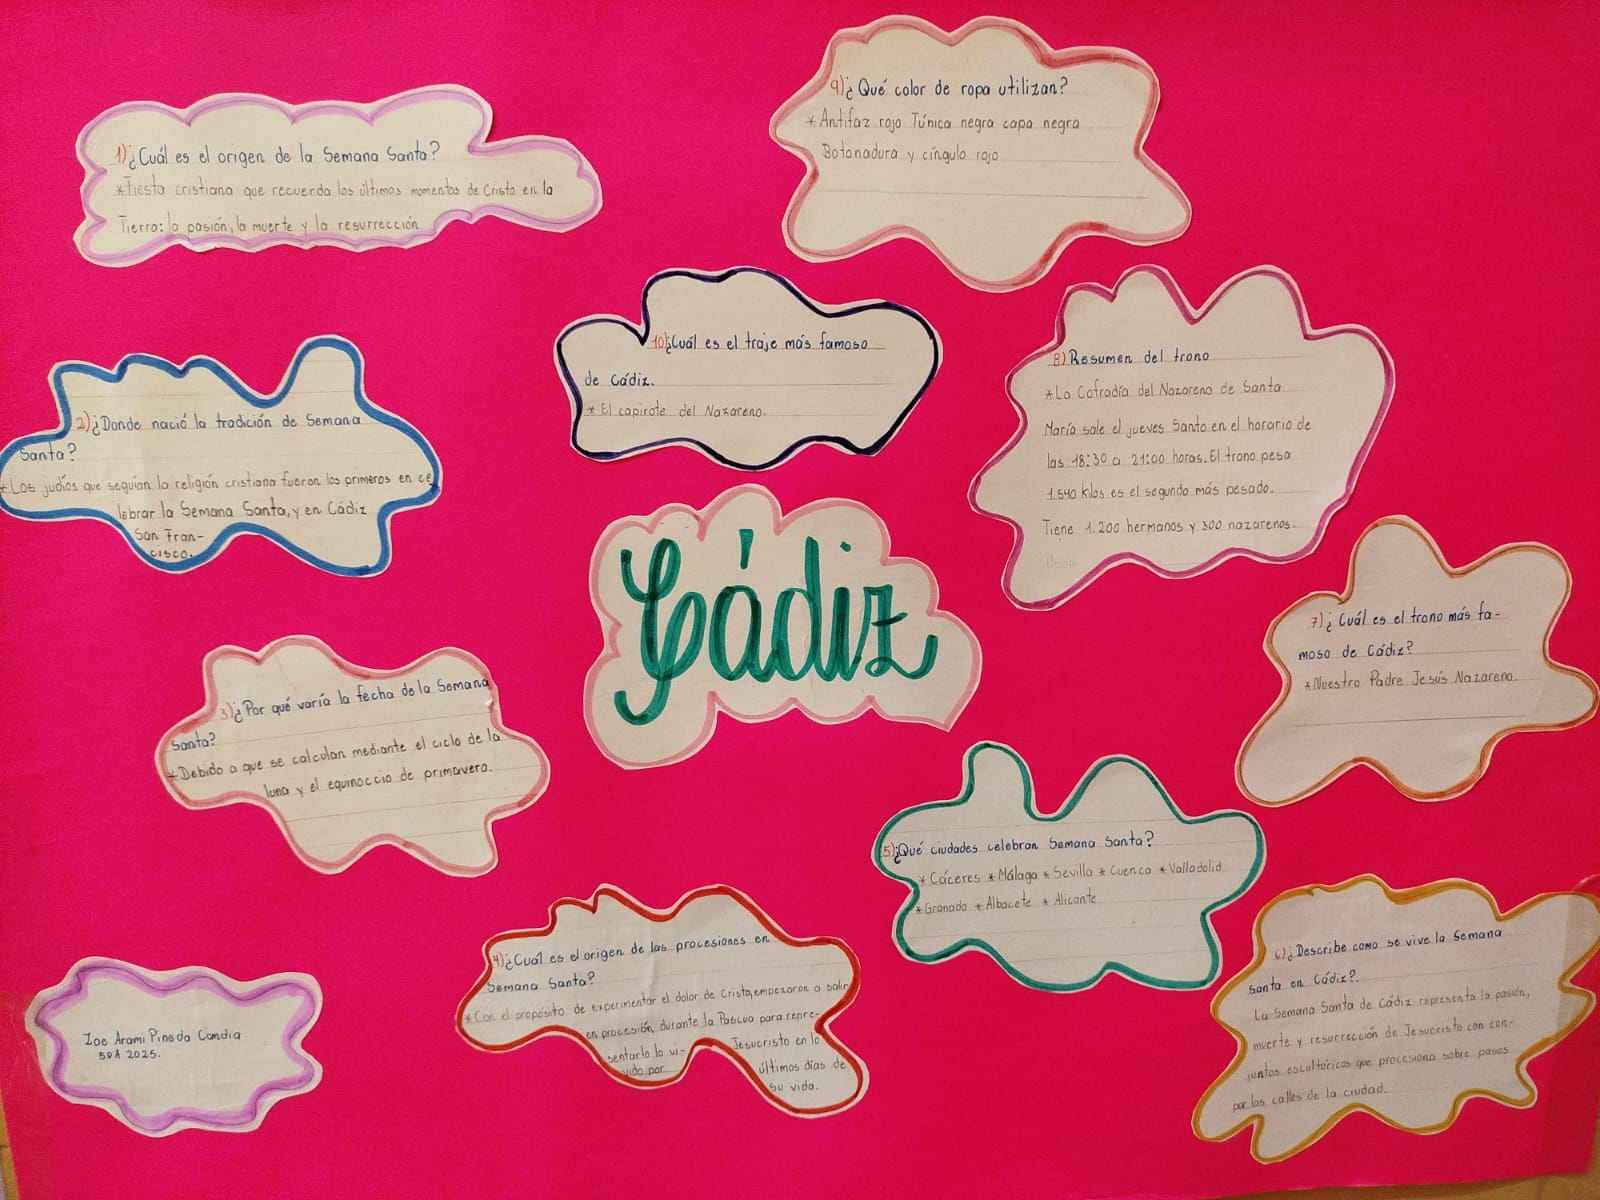 1)¿Cuál es el origen de la Semana Santa?
*Fiesta cristiana que recuerda los últimos momentos de Cristo en la
Tierra: la pasión, la muerte y la resurrección
2)¿Donde nació la tradición de Semana
Santa?
*Los judíos que seguían la religión cristiana fueron los primeros en ce
lebrar la Semana Santa, y en Cádiz
San Fran-
cisco.
3)¿Por qué varía la fecha de la Semana
Santa?
*Debido a que se calculan mediante el ciclo de la
luna y el equinoccio de primavera.
4)¿Cuál es el origen de las procesiones en
Semana Santa?
*Con el propósito de experimentar el dolor de Cristo, empezaron a salir
en procesión, durante la Pascua para repre-
sentarlo lo vi-
vido por
Jesucristo en lo
últimos días de
su vida.
5)¿Qué ciudades celebran Semana Santa?
*Cáceres *Málaga *Sevilla *Cuenca *Valladolid
*Granada *Albacete *Alicante
6)¿Describe como se vive la Semana
santa en Cádiz?.
La Semana Santa de Cádiz representa la pasión,
muerte y resurrección de Jesucristo con con-
juntos escultóricos que procesiona sobre pasos
por las calles de la ciudad.
7)¿Cuál es el trono más fa-
moso de Cádiz?
*Nuestro Padre Jesús Nazareno.
8)Resumen del trono
*La Cofradía del Nazareno de Santa
María sale el jueves Santo en el horario de
las 18:30 a 21:00 horas. El trono pesa
1.540 kilos es el segundo más pesado.
Tiene 1.200 hermanos y 300 nazarenos.
Usan
9)¿Qué color de ropa utilizan?
*Antifaz rojo Túnica negra capa negra
Botonadura y cíngulo rojo
10)¿Cuál es el traje más famoso
de Cádiz.
*El capirote del Nazareno.
Cádiz
Zoe Arami Pineda Candia
5ºA 2025.